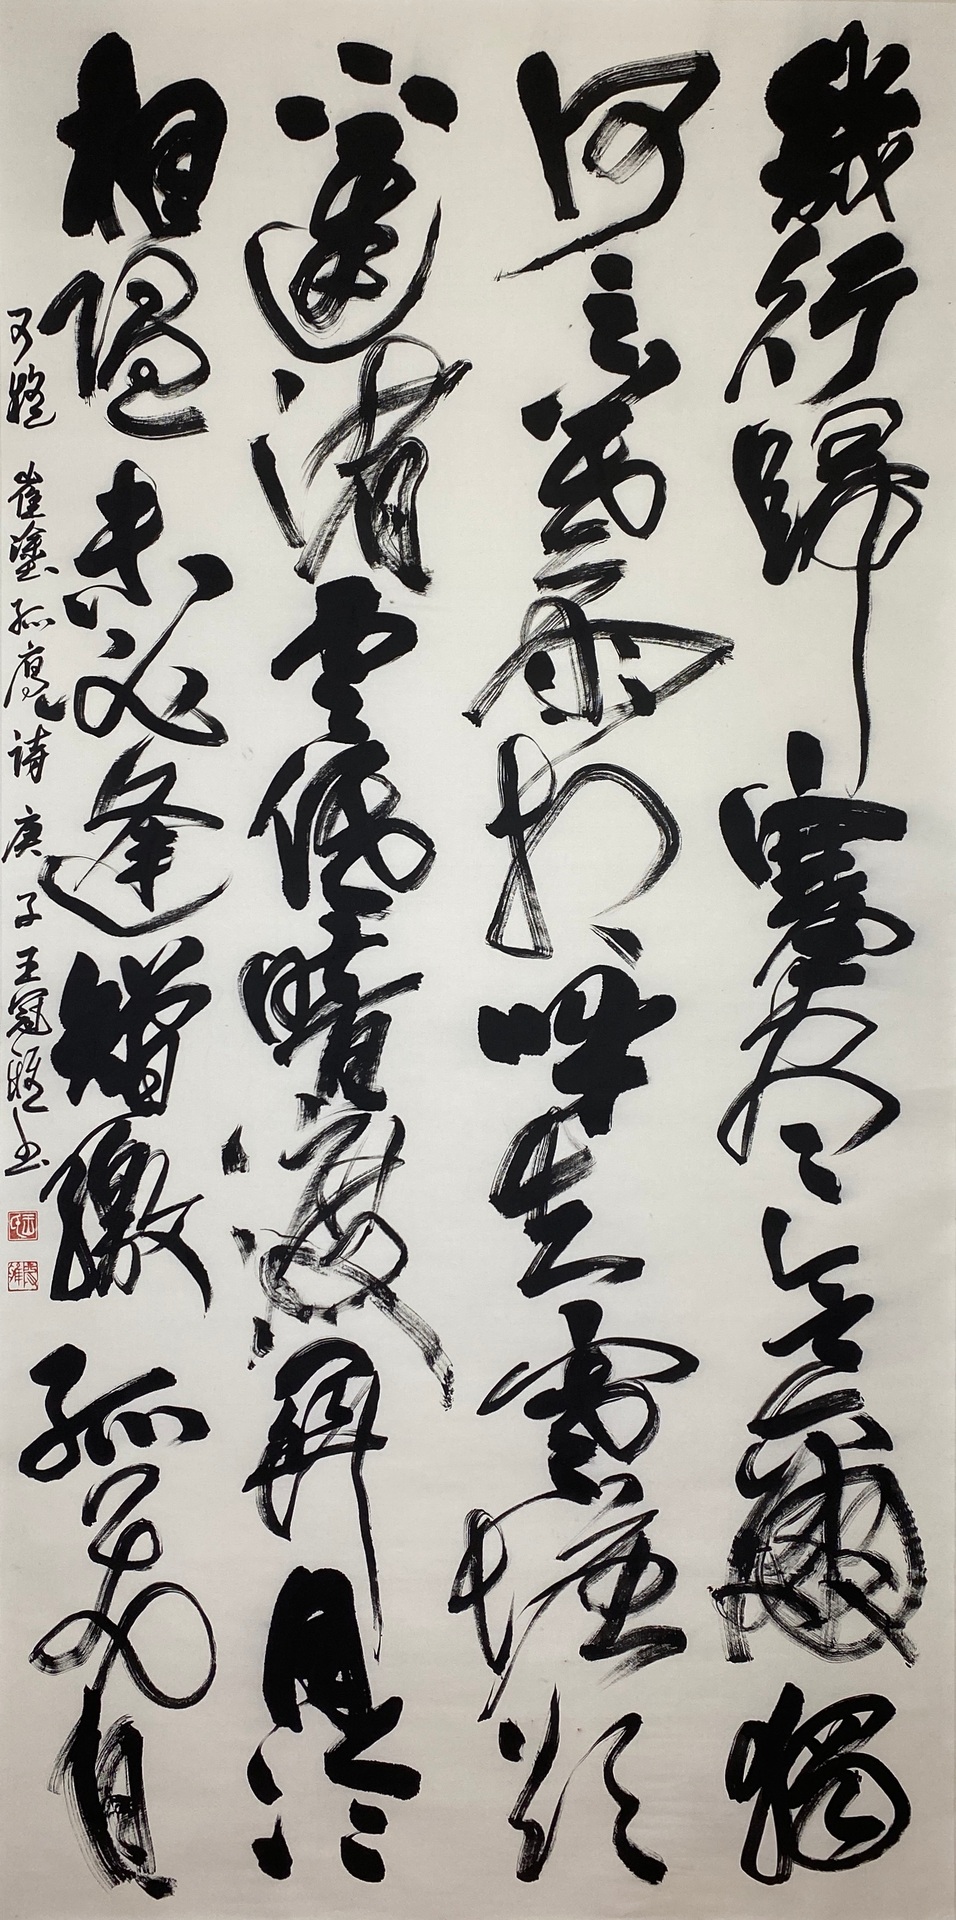 幾行歸塞盡念爾獨
何之暮雨相呼失寒塘欲
下遲渚雲低暗渡關月冷
相隨未必逢矰繳孤飛自
可疑 崔塗孤雁詩 庚子王冠书